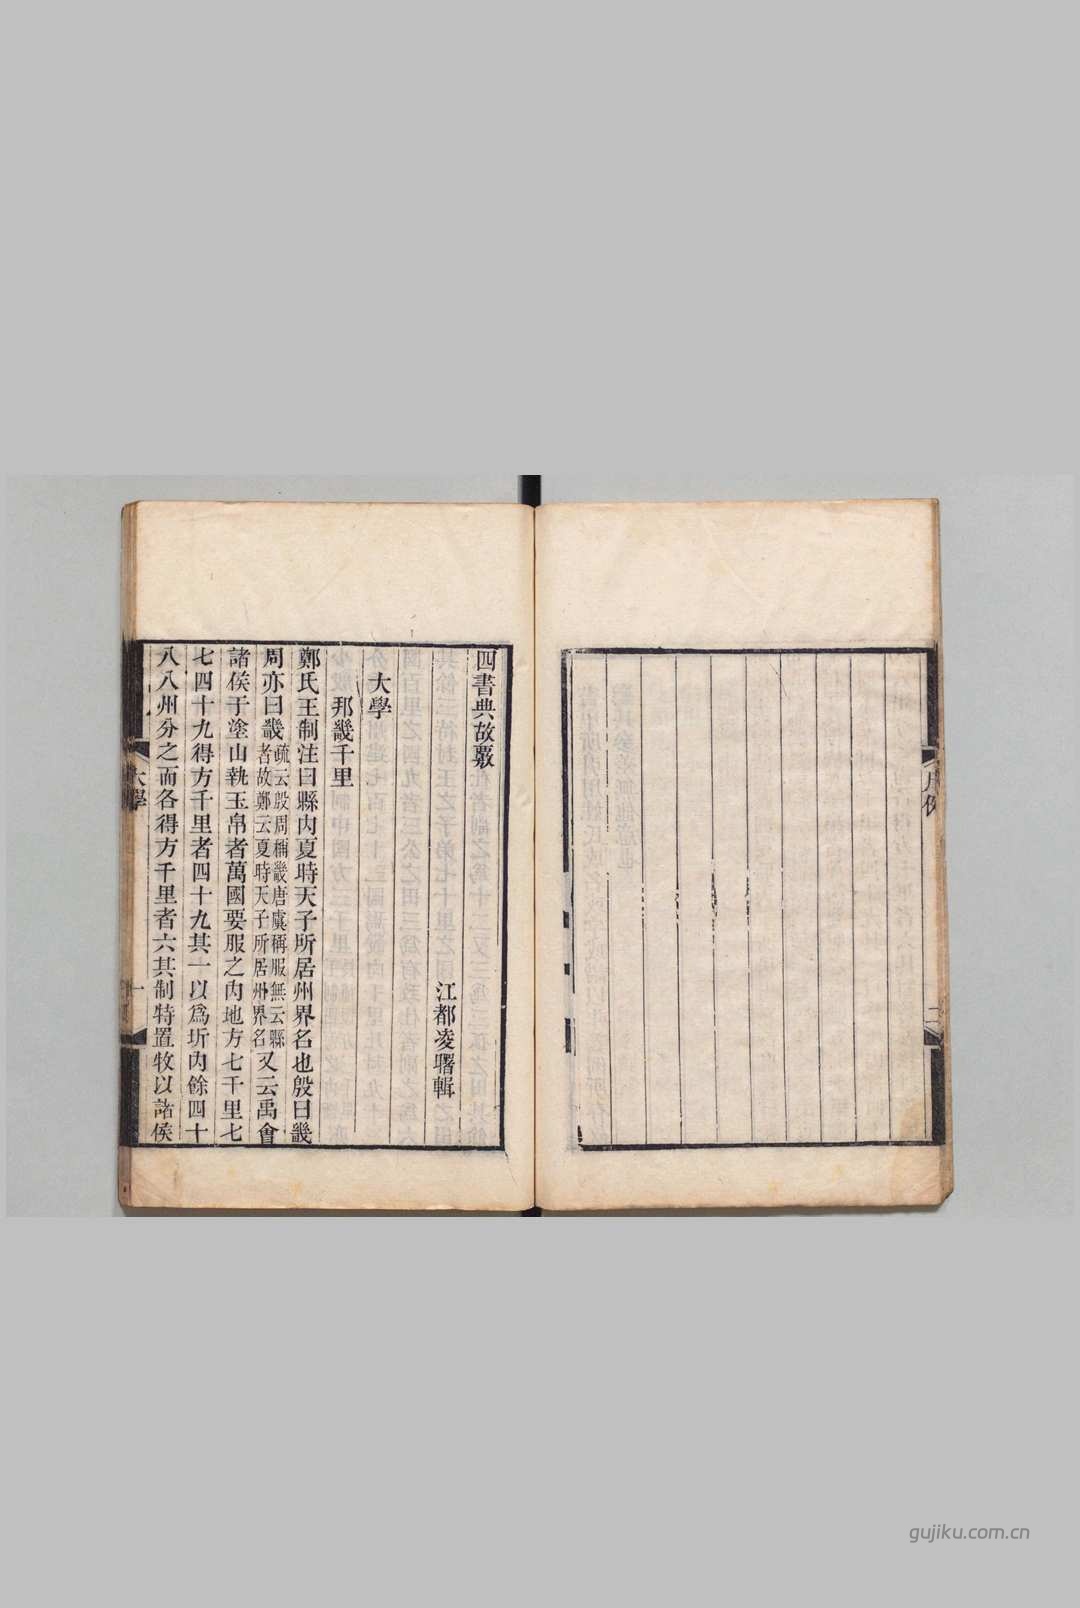 四書典故覈
江都凌曙輯
大學
邦畿千里
鄭氏王制注曰縣內夏時天子所居州界名也殷曰畿
周亦曰畿疏云殷周稱畿唐虞稱服無云縣者故鄭云夏時天子所居州界名又云禹會
諸侯于塗山執玉帛者萬國要服之內地方七千里七
七四十九得方千里者四十九其一以爲圻內餘四十
八八州分之而各得方千里者六其制特置牧以諸侯
大學
一
序例
二
gujiku.com.cn